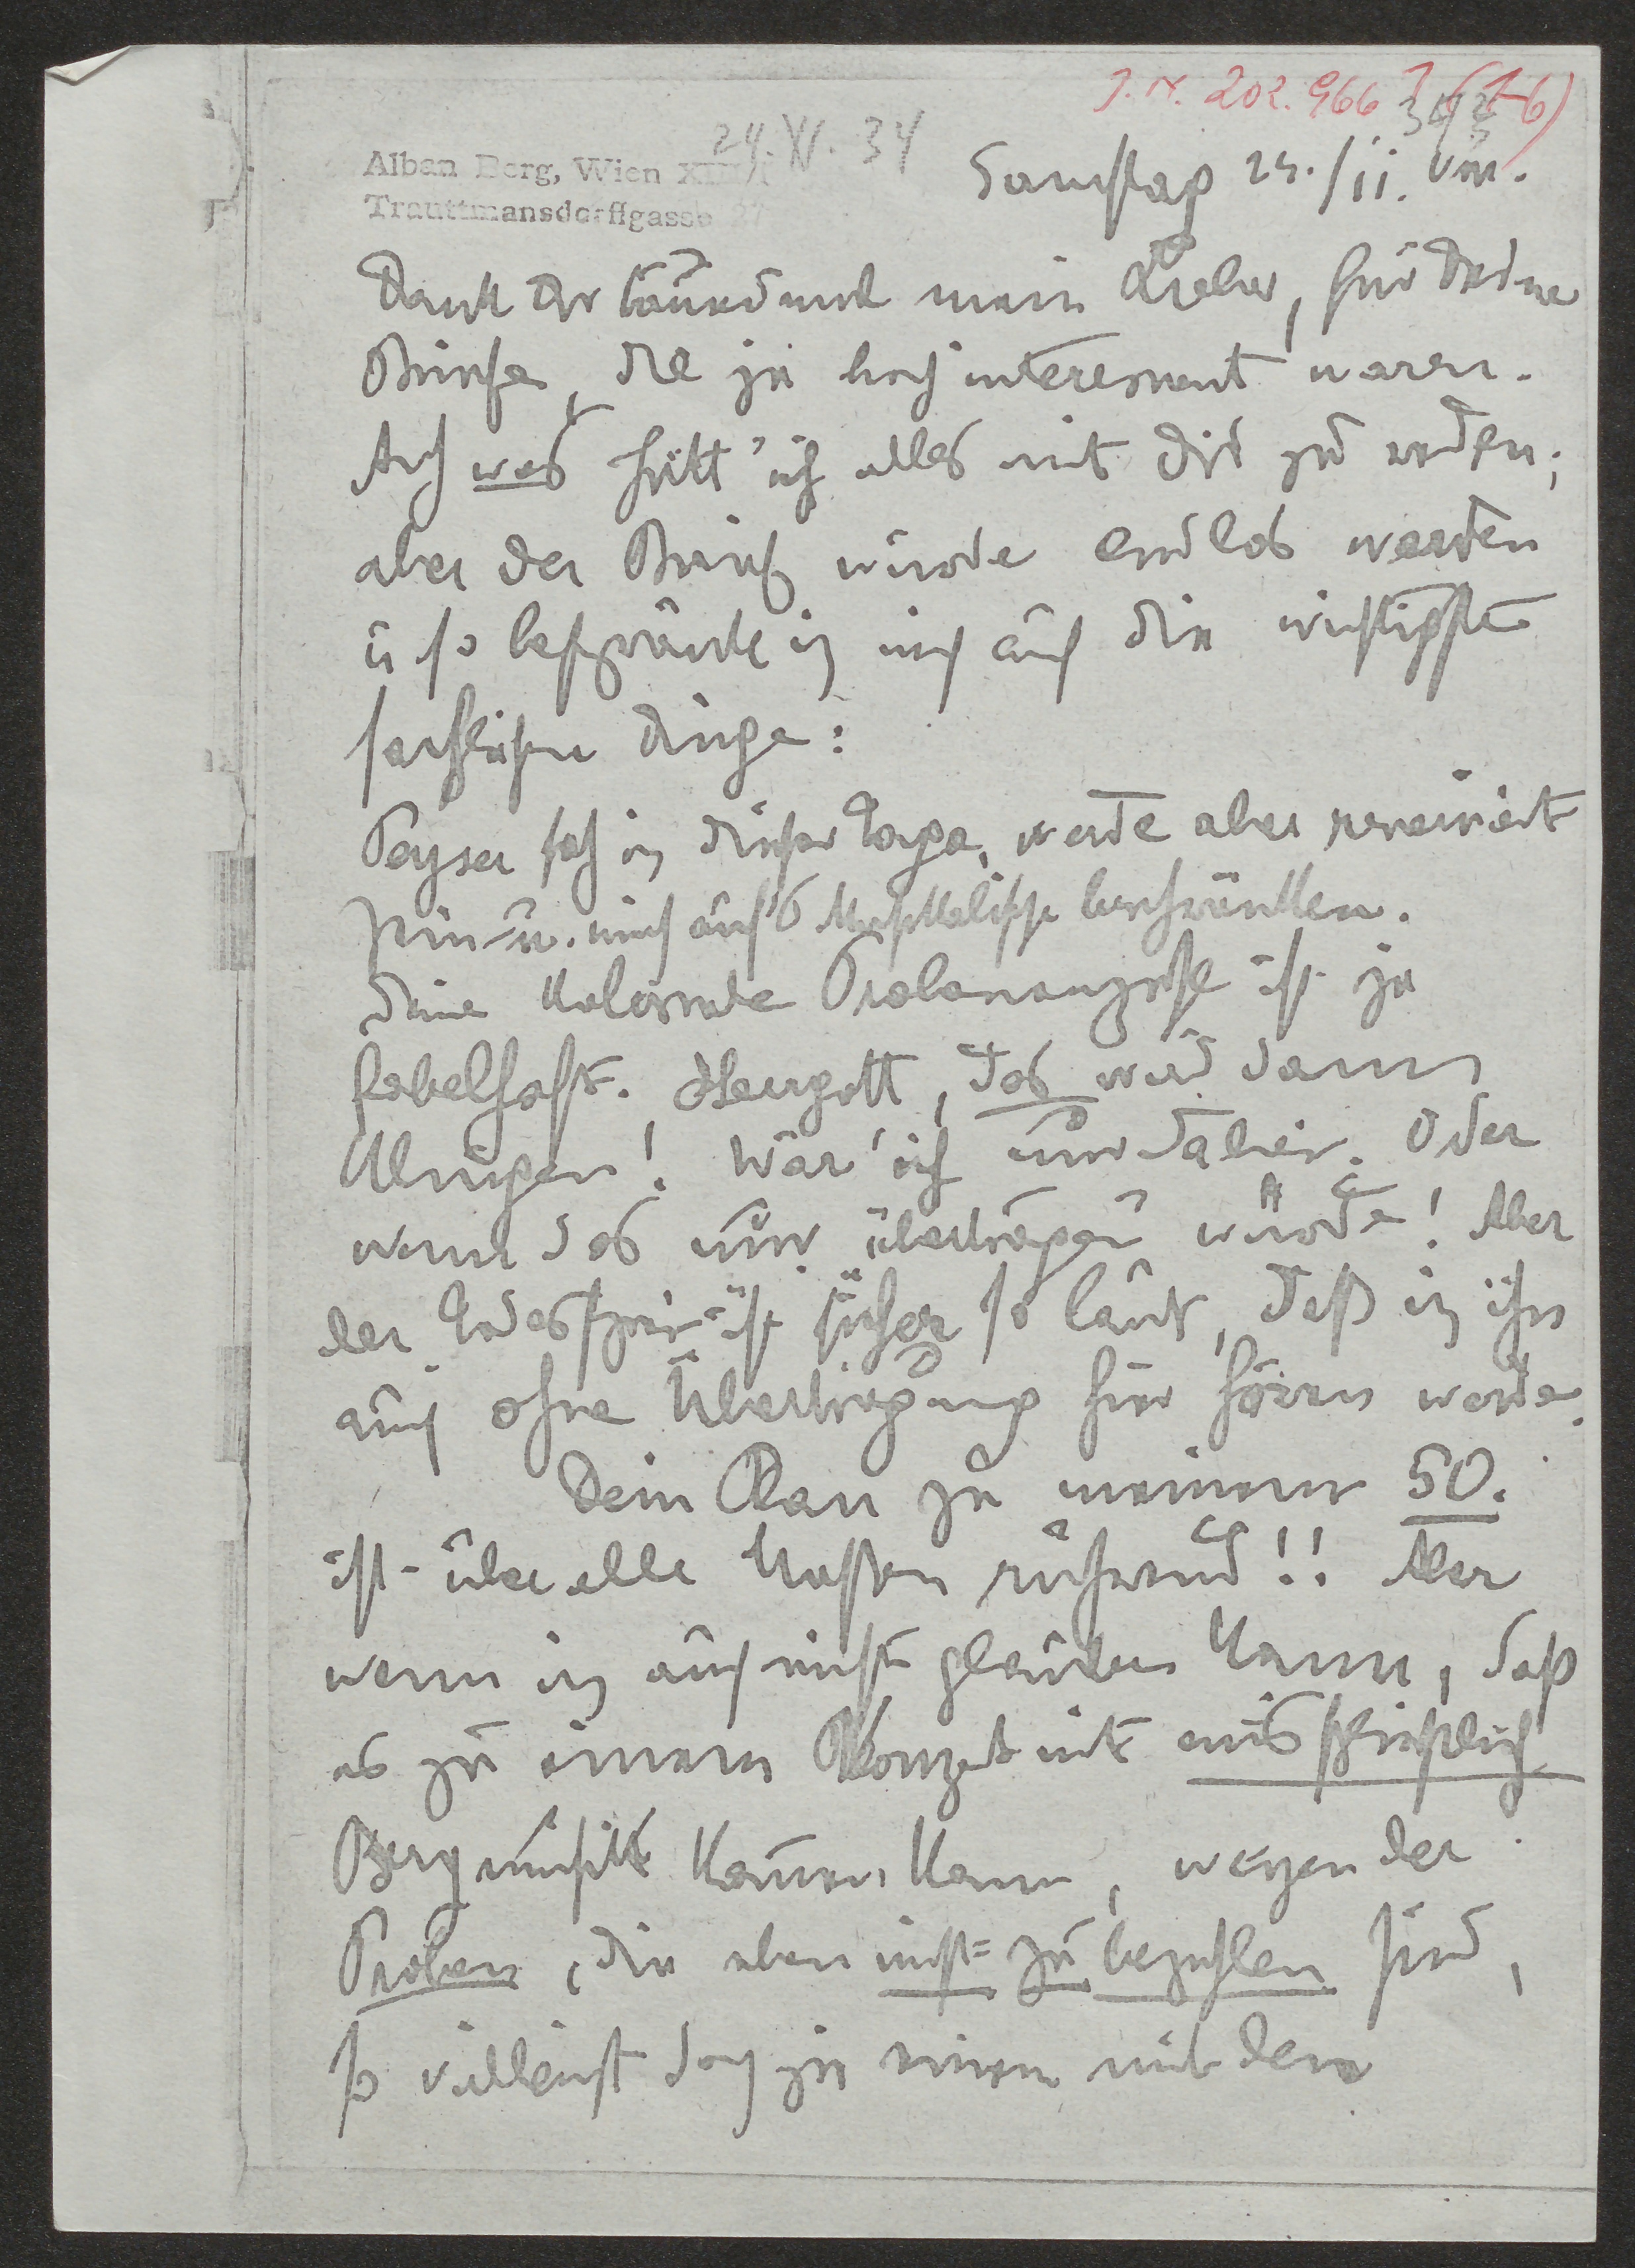 J. N. 202.966
24. XI. 34
Alban Berg, Wien XIII/1
Trauttmansdorffgasse 27
Samstag 24./11. Vm.
Dank Dir tausendmal mein Lieber, für Deine
Briefe, die ja hochinteressant waren.
Ach was hätt' ich alles mit Dir zu reden;
aber der Brief würde endlos werden
u so beschränke ich mich auf die wichtigsten
sachlichen Dinge:
seh ich dieser Tage, werde aber reserviert
sein u. mich auf's Musikalische beschränken.
Deine kolossale Probenanzahl ist ja
fabelhaft. Herrgott, das wird dann
klingen! Wär' ich nur dabei. Oder
wenn das nur übertragen würde! Aber
der Todesschrei ist sicher so laut, daß ich ihn
auch ohne Übertragung hier hören werde.
Dein Plan zu meinem 50.
ist über alle Maßen rührend!! Aber
wenn ich auch nicht glauben kann, daß
es zu einem Konzert mit ausschließlich
Bergmusik kommen kann, wegen der
Proben, die eben nicht zu bezahlen sind,
so vielleicht doch zu einem mit dem